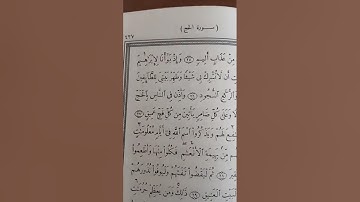 ( سورة الحج )
مِنْ عَذَابٍ أَلِيمٍ ۝ وَإِذْ بَوَّأْنَا لِإِبْرَٰهِيمَ
أَن لَّا تُشْرِكْ بِى شَيْـًٔا وَطَهِّرْ بَيْتِىَ لِلطَّآئِفِينَ
وَٱلرُّكَّعِ ٱلسُّجُودِ ۝ وَأَذِّن فِى ٱلنَّاسِ بِٱلْحَجِّ
وَعَلَىٰ كُلِّ ضَامِرٍ يَأْتِينَ مِن كُلِّ فَجٍّ عَمِيقٍ
لَهُمْ وَيَذْكُرُوا۟ ٱسْمَ ٱللَّهِ فِىٓ أَيَّامٍ مَّعْلُومَٰتٍ
مِّنۢ بَهِيمَةِ ٱلْأَنْعَٰمِ فَكُلُوا۟ مِنْهَا وَأَطْعِمُوا۟
ٱلْفَقِيرَ ۝ ثُمَّ لْيَقْضُوا۟ تَفَثَهُمْ وَلْيُوفُوا۟ نُذُورَهُمْ
ٱلْعَتِيقِ ۝ ذَٰلِكَ وَمَن يُعَظِّمْ حُرُمَٰتِ